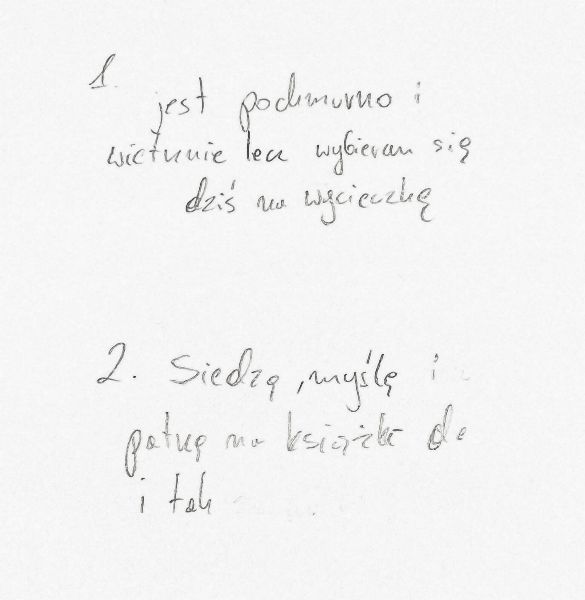 1.
jest pochmurno i
wietrznie lecz wybieram się
dziś na wycieczkę
2. Siedzę, myślę i
patrzę na książki
i tak